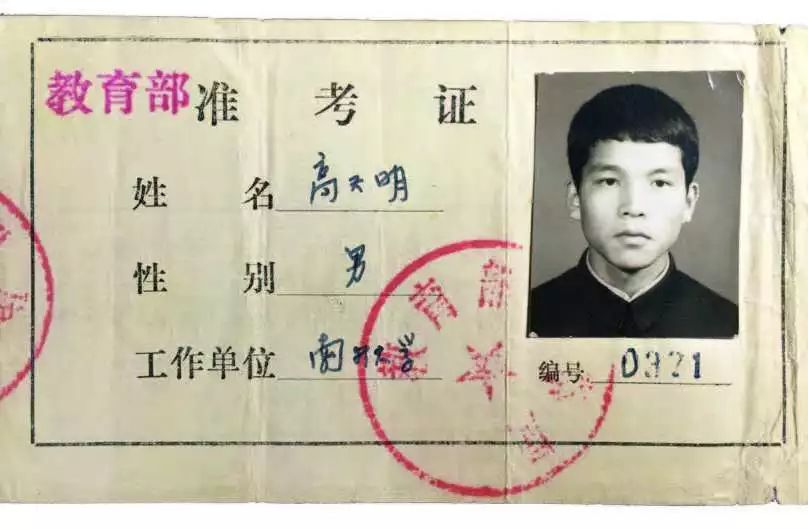 教育部准考证
姓名 高天明
性别 男
工作单位 南开大学
编号 0321
教育部